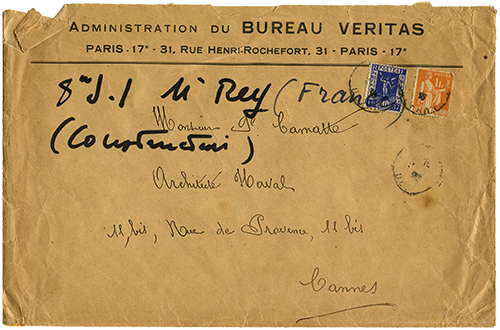 ADMINISTRATION DU BUREAU VERITAS
PARIS-17e - 31, RUE HENRI-ROCHEFORT, 31 - PARIS-17e
Mr Rey (France)
(Constructeurs)
Monsieur Camatte
Architecte Naval
11, bis, Rue de Provence, 11 bis
Cannes